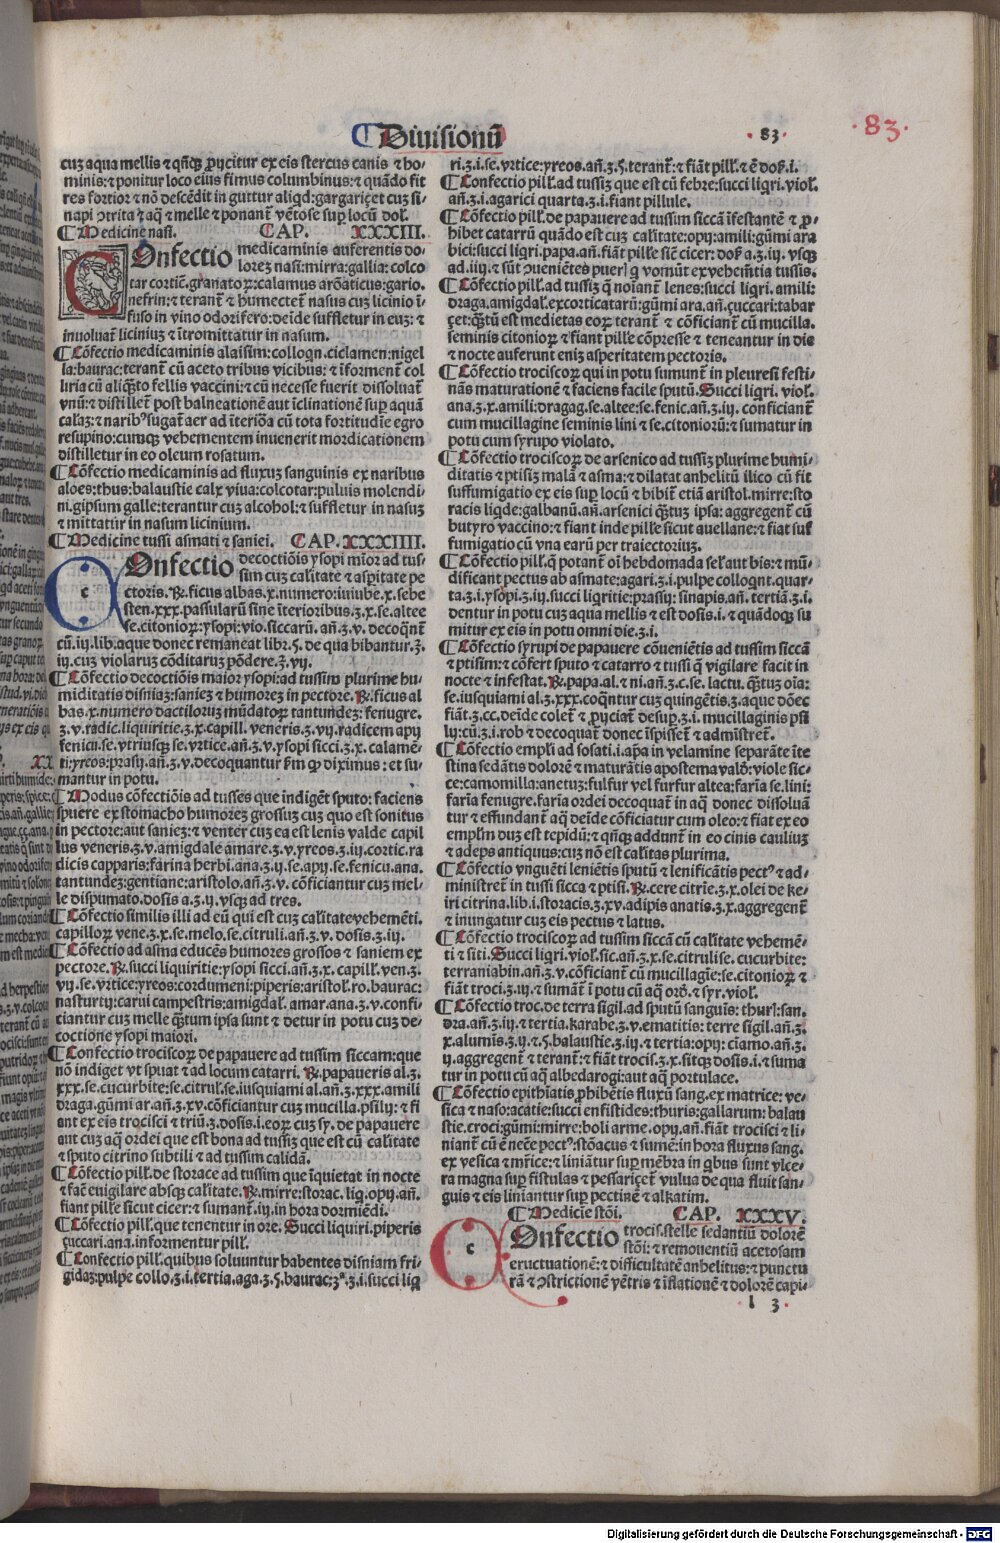 ¶ Diuisionū
83
· 83 ·
cuꝫ aqua mellis ⁊ qñqꝫ ꝓijcitur ex eis stercus canis ⁊ ho-
minis: ⁊ ponitur loco eius fimus columbinus: ⁊ quādo fit
res fortior ⁊ nō descēdit in guttur aliqd: gargariçet cuꝫ si-
napi ↄtrita ⁊ aq̄ ⁊ melle ⁊ ponant̄ vētose sup̱ locū dol̕.
¶ Medicine nasi. CAP. XXXIII.
COnfectio medicaminis auferentis do-
lorez nasi: mirra: gallia: colco
tar corticē. granatoꝝ: calamus arōaticus: gario-
nefrin: ⁊ terant̄ ⁊ humectet̄ nasus cuꝫ licinio ī-
fuso in vino odorifero: deīde suffletur in euꝫ: ⁊
inuoluat̄ licinius ⁊ ītromittatur in nasum.
¶ Cōfectio medicaminis alaisim: colloqn. ciclamen: nigel
la: baurac: terant̄ cū aceto tribus vicibus: ⁊ īforment̄ col
liria cū aliqͣto fellis vaccini: ⁊ cū necesse fuerit dissoluat̄
vnū: ⁊ distillet̄ post balneationē aut īclinationē sup̱ aquā
calaꝫ: ⁊ naribꝰ sugat̄ aer ad īteriōa cū tota fortitudīe egro
resupino: cumqꝫ vehementem inuenerit mordicationem
distilletur in eo oleum rosatum.
¶ Cōfectio medicaminis ad fluxuꝫ sanguinis ex naribus
aloes: thus: balaustie calx viua: colcotar: puluis molendi-
ni. gipsum galle: terantur cuꝫ alcohol: ⁊ suffletur in nasuꝫ
⁊ mittatūr in nasum licinium.
¶ Medicine tussi asmati ⁊ saniei. CAP. XXXIIII.
COnfectio decoctiōis ysopi mīor ad tus-
sim cuꝫ calitate ⁊ asp̱itate pe
ctoris. ℞. ficus albas. x. numero: iuiube. x. sebe
sten. xxx. passularū sine īterioribus. ʒ. x. se. altee
se. citonioꝝ: ysopi: vio. siccarū. añ. ʒ. v. decoq̄nt̄
cū. iij. lib. aque donec remaneat libr. ⁊. de qua bibantur. ʒ.
iij. cuꝫ violaruꝫ cōditaruꝫ pōdere. ʒ. vij.
¶ Cōfectio decoctiōis maior ysopi: ad tussim plurime hu-
miditatis disniaꝫ: saniez ⁊ humorez in pectore. ℞. ficus al
bas. x. numero dactiloruꝫ mūdatoꝝ tantundeꝫ: fenugre.
ʒ. v. radic. liquiritie. ʒ. x. capill. veneris. ʒ. vij. radicem apij
fenicu. se. vtriusqꝫ se. vrtice. añ. ʒ. v. ysopi sicci. ʒ. x. calamē-
ti: yreos: prasij. añ. ʒ. v. decoquantur fm̄ qꝫ diximus: et su-
mantur in potu.
¶ Modus cōfectiōis ad tusses que indigēt sputo: faciens
spuere ex stomacho humorez grossuꝫ cuꝫ quo est sonitus
in pectore: aut saniez: ⁊ venter cuꝫ ea est lenis valde capil
lus veneris. ʒ. v. amigdale amare. ʒ. v. yreos. ʒ. iij. cortic. ra
dicis capparis: farina herbi. ana. ʒ. ij. se. apij. se. fenicu. ana.
tantundeꝫ: gentiane: aristolo. añ. ʒ. v. cōficiantur cuꝫ mel-
le dispumato. dosis a. ʒ. ij. vsqꝫ ad tres.
¶ Cōfectio similis illi ad eū qui est cuꝫ calitate vehemēti.
capilloꝝ vene. ʒ. x. se. melo. se. citruli. añ. ʒ. v. dosis. ʒ. iij.
¶ Cōfectio ad asma educēs humores grossos ⁊ saniem ex
pectore. ℞. succi liquiritie: ysopi sicci. añ. ʒ. x. capill. ven. ʒ.
vij. se. vrtice: yreos: cordumeni: piperis: aristol. ro. baurac:
nasturtij: carui campestris: amigdal̕. amar. ana. ʒ. v. confi-
ciantur cuꝫ melle q̄tum ipsa sunt ⁊ detur in potu cuꝫ de-
coctione ysopi maiori.
¶ Confectio trociscoꝝ de papauere ad tussim siccam: que
nō indiget vt spuat̄ ⁊ ad locum catarri. ℞. papaueris al. ʒ.
xxx. se. cucurbite: se. citrul. se. iusquiami al. ʒ. añ. ʒ. xxx. amili
draga. gūmi ar. añ. ʒ. xv. cōficiantur cuꝫ mucilla. psilij: ⁊ fi
ant ex eis trocisci ⁊ triū. ʒ. dosis. i. eoꝝ cuꝫ sy. de papauere
aut cuꝫ aq̄ ordei que est bona ad tussiꝫ que est cū calitate
⁊ sputo citrino subtili ⁊ ad tussim calidā.
¶ Cōfectio pill. de storace ad tussim que īquietat in nocte
⁊ fac̄ euigilare absqꝫ calitate. ℞. mirre: storac. liq. opij. añ.
fiant pille sicut cicer: ⁊ sumant̄. iij. in hora dormiēdi.
¶ Cōfectio pill. que tenentur in ore. Succi liquiri. piperis
çuccari. ana. informentur pill.
¶ Confectio pill. quibus soluuntur habentes disniam fri-
gidaꝫ: pulpe collo. ʒ. i. tertia. aga. ʒ. ⁊. baurac: ʒᵃ. ʒ. i. succi liq̄
ri. ʒ. i. se. vrtice: yreos. añ. ʒ. ⁊. terant̄: ⁊ fiāt pill. ⁊ ē dos̕. i.
¶ Confectio pill. ad tussiꝫ que est cū febre: succi liqri. viol̕.
añ. ʒ. i. agarici quarta. ʒ. i. fiant pillule.
¶ Cōfectio pill. de papauere ad tussim siccā īfestantē ⁊ ꝓ-
hibet catarrū quādo est cuꝫ calitate: opij: amili: gūmi ara
bici: succi liqri. papa. añ. fiāt pille sic̄ cicer: dos̕ a. ʒ. iij. vsqꝫ
ad. iiij. ⁊ sūt ↄuenientes puerꝭ q̄ vomūt ex vehemētia tussis.
¶ Cōfectio pill. ad tussiꝫ q̄ noīant̄ lenes: succi liqri. amili:
draga. amigdal̕. excorticatarū: gūmi ara. añ. çuccari: tabar
çet: q̄tū est medietas eoꝝ terant̄ ⁊ cōficiant̄ cū mucilla.
seminis citonioꝝ ⁊ fiant pille cōpresse ⁊ teneantur in die
⁊ nocte auferunt eniꝫ asperitatem pectoris.
¶ Cōfectio trociscoꝝ qui in potu sumunt̄ in pleuresi festi-
nās maturationē ⁊ faciens facile sputū. Succi liqri. viol̕.
ana. ʒ. x. amili: dragag. se. altee: se. fenic. añ. ʒ. iij. conficiant̄
cum mucillagine seminis lini ⁊ se. citoniorū: ⁊ sumatur in
potu cum syrupo violato.
¶ Cōfectio trociscoꝝ de arsenico ad tussiꝫ plurime humi-
ditatis ⁊ ptisiꝫ malā ⁊ asma: ⁊ dilatat anhelitū ilico cū fit
suffumigatio ex eis sup̱ locū ⁊ bibit̄ etiā aristol. mirre: sto
racis liqde: galbanū. añ. arsenici q̄tuꝫ: ipsa: aggregent̄ cū
butyro vaccino: ⁊ fiant inde pille sicut auellane: ⁊ fiat suf
fumigatio cū vna earū per traiectoriuꝫ.
¶ Cōfectio pill. q̄ potant̄ oī hebdomada sel̕ aut bis: ⁊ mū-
dificant pectus ab asmate: agari. ʒ. i. pulpe colloqnt. quar-
ta. ʒ. i. ysopi. ʒ. iij. succi liqritie: prasij: sinapis. añ. tertiā. ʒ. i.
dentur in potu cuꝫ aqua mellis ⁊ est dosis. i. ⁊ quādoqꝫ su
mitur ex eis in potu omni die. ʒ. i.
¶ Cōfectio syrupi de papauere cōueniētis ad tussim siccā
⁊ ptisim: ⁊ cōfert sputo ⁊ catarro ⁊ tussi q̄ vigilare facit in
nocte ⁊ infestat. ℞. papa. al. ⁊ ni. añ. ʒ. c. se. lactu. q̄tuꝫ oīa:
se. iusquiami al. ʒ. xxx. coq̄ntur cuꝫ quingētis. ʒ. aque dōec
fiāt. ʒ. cc. deīde colet̄ ⁊ ꝓijciat̄ desup̱. ʒ. i. mucillaginis psi
lij: cū. ʒ. i. rob ⁊ decoquat̄ donec īspisset̄ ⁊ admīstret̄.
¶ Cōfectio empli ad sosati. i. apͫa in velamine separāte īte
stina sedātis dolorē ⁊ maturātis apostema valō: viole sic-
ce: camomilla: anetuꝫ: fulfur vel furfur altea: faria se. lini:
faria fenugre. faria ordei decoquat̄ in aq̄ donec dissoluā
tur ⁊ effundant̄ aq̄ deīde cōficiatur cum oleo: ⁊ fiat ex eo
emplm duꝫ est tepidū: ⁊ qñqꝫ addunt̄ in eo cinis cauliuꝫ
⁊ adeps antiquus: cuꝫ nō est calitas plurima.
¶ Cōfectio vnguēti leniētis sputū ⁊ lenificātis pectꝰ ⁊ ad-
ministret̄ in tussi sicca ⁊ ptisi. ℞. cere citrīe. ʒ. x. olei de ke-
iri citrina. lib. i. storacis. ʒ. xv. adipis anatis. ʒ. x. aggregent̄
⁊ inungatur cuꝫ eis pectus ⁊ latus.
¶ Cōfectio trociscoꝝ ad tussim siccā cū calitate vehemē-
ti ⁊ siti. Succi liqri. viol. sic. añ. ʒ. x. se. citruli se. cucurbite:
terraniabin. añ. ʒ. v. cōficiant̄ cū mucillagīe: se. citonioꝝ ⁊
fiāt troci. ʒ. iij. ⁊ sumāt̄ ī potu cū aq̄ orō. ⁊ syr. viol.
¶ Cōfectio troc. de terra sigil. ad sputū sanguis: thurꝭ: san.
dra. añ. ʒ. iij. ⁊ tertia. karabe. ʒ. v. ematitis: terre sigil. añ. ʒ.
x. alumīs. ʒ. ij. ⁊. ⁊. balaustie. ʒ. iij. ⁊ tertia: opij: ciamo. añ. ʒ.
ij. aggregent̄ ⁊ terant̄: ⁊ fiāt trocis. ʒ. x. sitqꝫ dosis. i. ⁊ suma
tur in potu cū aq̄ albedarogi: aut aq̄ portulace.
¶ Cōfectio epithīatis ꝓhibētis fluxū sang. ex matrice: ve-
sica ⁊ naso: acatie: succi enfistides: thuris: gallarum: balau
stie. croci: gūmi: mirre: boli arme. opij. añ. fiāt trocisci ⁊ li-
niant̄ cū ē nēce pectꝰ: stōacus ⁊ sumē: in hora fluxus sang.
ex vesica ⁊ mr̄ice: ⁊ liniātur sup̱ mēbra in qbus sunt vlce-
ra magna sup̱ fistulas ⁊ pessariçet̄ vulua de qua fluit san-
guis ⁊ eis liniantur sup̱ pectinē ⁊ alkatim.
¶ Medicīe stōi. CAP. XXXV.
COnfectio trocis. stelle sedantiū dolorē
stōi: ⁊ remouentiū acetosam
eructuationē: ⁊ difficultatē anhelitus: ⁊ punctu
rā ⁊ ↄstrictionē vētris ⁊ īflationē ⁊ dolorē capi-
l 3
Digitalisierung gefördert durch die Deutsche Forschungsgemeinschaft - DFG